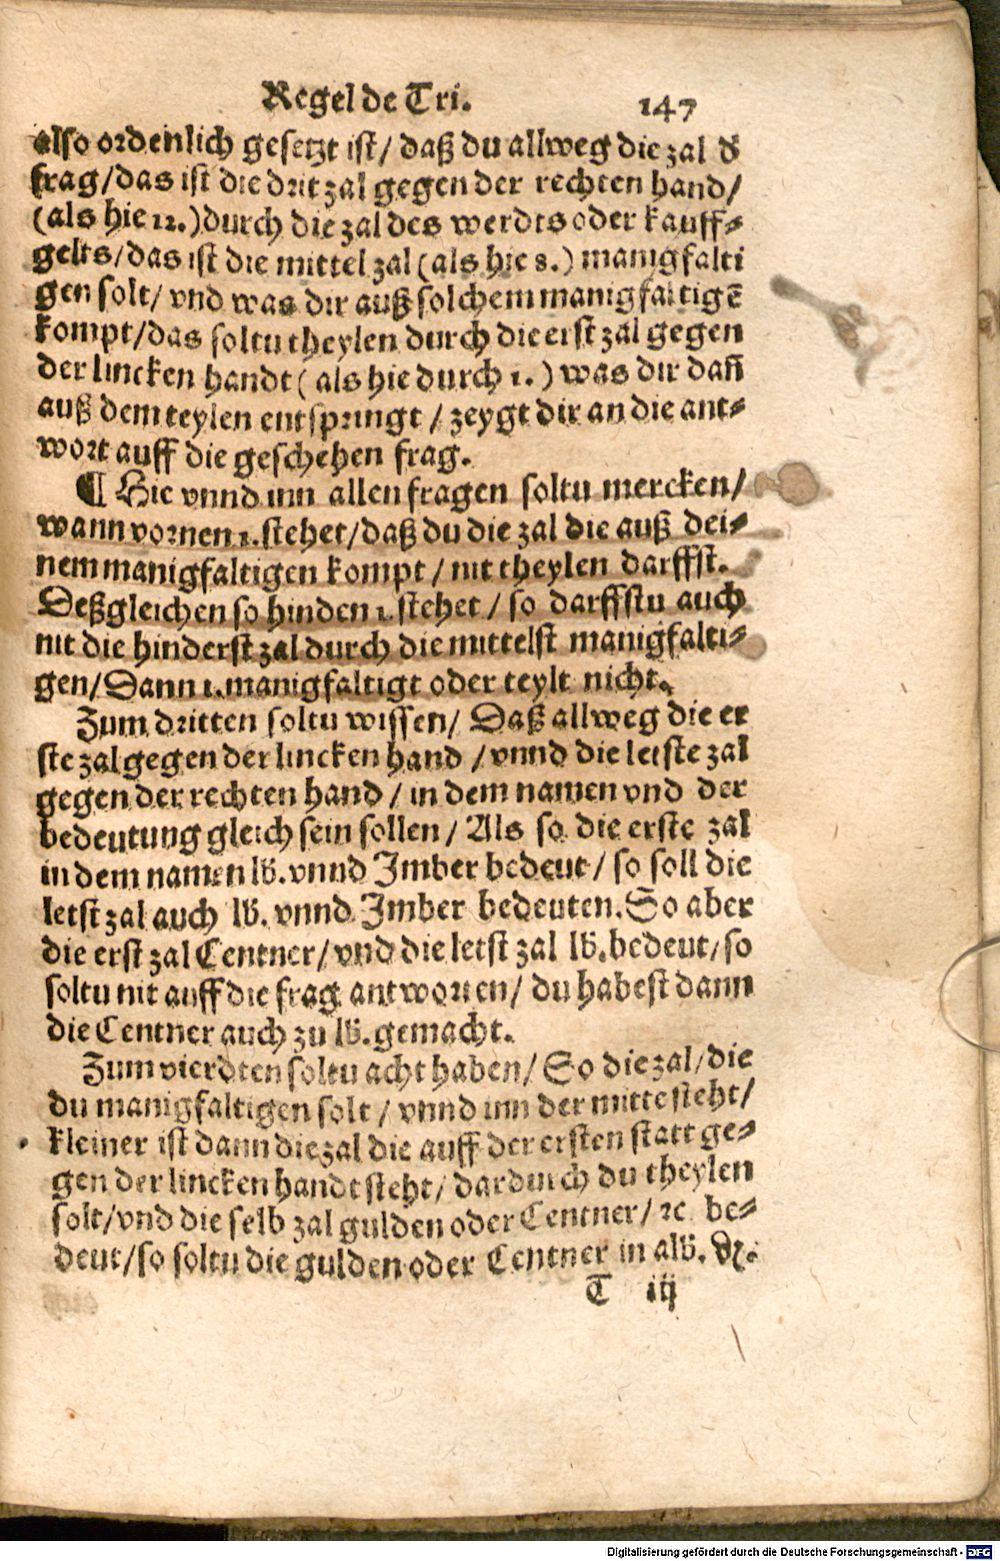 Regel de Tri. 147
also ordenlich gesetzt ist/ daß du allweg die zal d̕
frag/das ist die drit zal gegen der rechten hand/
(als hie 12.)durch die zal des werdts oder kauff-
gelts/das ist die mittel zal (als hie 8.) manigfalti
gen solt/ vnd was dir auß solchem manigfaltigē
kompt/das soltu theylen durch die erst zal gegen
der lincken handt ( als hie durch 1. ) was dir dañ
auß dem teylen entspringt / zeygt dir an die ant-
wort auff die geschehen frag.
¶ Hie vnnd inn allen fragen soltu mercken/
wann vornen 1. stehet/daß du die zal die auß dei-
nem manigfaltigen kompt / nit theylen darffst.
Deßgleichen so hinden 1. stehet / so darffstu auch
nit die hinderst zal durch die mittelst manigfalti-
gen/Dann 1. manigfaltigt oder teylt nicht.
Zum dritten soltu wissen/ Daß allweg die er
ste zal gegen der lincken hand /vnnd die letste zal
gegen der rechten hand / in dem namen vnd der
bedeutung gleich sein sollen/ Als so die erste zal
in dem namen lb. vnnd Imber bedeut/ so soll die
letst zal auch lb. vnnd Imber bedeuten. So aber
die erst zal Centner/ vnd die letst zal lb. bedeut/ so
soltu nit auff die frag antworten/ du habest dann
die Centner auch zu lb. gemacht.
Zum vierdten soltu acht haben/ So die zal/ die
du manigfaltigen solt / vnnd inn der mitte steht/
kleiner ist dann die zal die auff der ersten statt ge-
gen der lincken handt steht/ dardurch du theylen
solt/vnd die selb zal gulden oder Centner/ ꝛc be-
deut/so soltu die gulden oder Centner in alb. ₰.
T iij
Digitalisierung gefördert durch die Deutsche Forschungsgemeinschaft - DFG